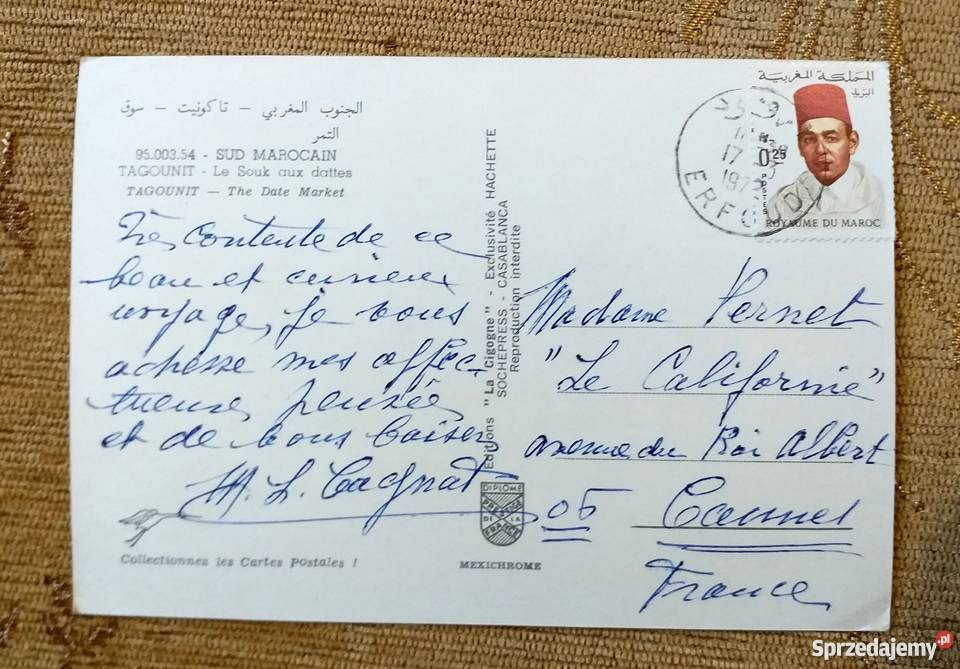 الجنوب المغربي — تاكونيت — سوق
التمر
95.003.54 - SUD MAROCAIN
TAGOUNIT - Le Souk aux dattes
TAGOUNIT — The Date Market
Très contente de ce
beau et curieux
voyage, je vous
adresse mes affec-
tueuses pensées
et de bons baisers
M. L. Cagnat
Collectionnez les Cartes Postales !
Editions "La Cigogne" - Exclusivité HACHETTE
SOCHEPRESS - CASABLANCA
Reproduction interdite
DIPLOME
PRESTIGE
DE LA
FRANCE
MEXICHROME
المملكة المغربية
البريد
0,25
POSTES
ROYAUME DU MAROC
17
ERFOUD
Madame Vernet
"Le Californie"
avenue du Roi Albert
06 Cannes
France
Sprzedajemy.pl